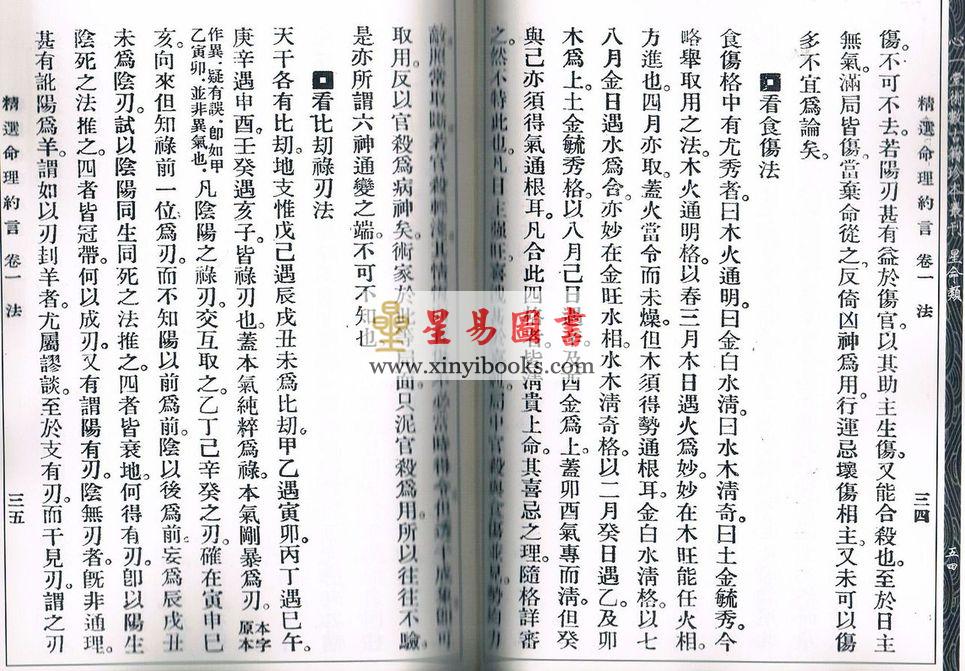 心一堂術數古籍珍本叢刊 星命類
五四
精選命理約言 卷一 法
三四
傷。不可不去。若陽刃甚有益於傷官。以其助主生傷。又能合殺也。至於日主
無氣。滿局皆傷。當棄命從之。反倚凶神爲用。行運忌壞傷相主。又未可以傷
多不宜爲論矣。
看食傷法
食傷格中有尤秀者。曰木火通明。曰金白水淸。曰水木淸奇。曰土金毓秀。今
略舉取用之法。木火通明格。以春三月木日遇火爲妙。妙在木旺能任火相
方進也。四月亦取。蓋火當令而未燥。但木須得勢通根耳。金白水淸格。以七
八月金日遇水爲合。亦妙在金旺水相。水木淸奇格。以二月癸日遇乙及卯
木爲上。土金毓秀格。以八月己日及酉金爲上。蓋卯酉氣專而淸。但癸
與己亦須得氣通根耳。凡合此四格者。皆淸貴上命。其喜忌之理。隨格詳審
之。然不特此也。凡日主強旺。局中官殺與食傷並見。勢均力
照常取斷。若官殺輕淺。其情
取用。反以官殺爲病神矣。術家於此等局面。只泥官殺爲用。所以往往不驗。
是亦所謂六神通變之端。不可不知也。
看比劫祿刃法
天干各有比劫。地支惟戊己遇辰戌丑未爲比劫。甲乙遇寅卯。丙丁遇巳午。
庚辛遇申酉。壬癸遇亥子。皆祿刃也。蓋本氣純粹爲祿。本氣剛暴爲刃。本字原本
作異。疑有誤。卽如甲乙寅卯。並非異氣也。凡陰陽之祿刃。交互取之。乙丁己辛癸之刃。確在寅申巳
亥。向來但知祿前一位爲刃。而不知陽以前爲前。陰以後爲前。妄爲辰戌丑
未爲陰刃。試以陰陽同生同死之法推之。四者皆衰地。何得有刃。卽以陽生
陰死之法推之。四者皆冠帶。何以成刃。又有謂陽有刃。陰無刃者。旣非通理。
甚有訛陽爲羊。謂如以刃刲羊者。尤屬謬談。至於支有刃。而干見刃。謂之刃
精選命理約言 卷一 法
三五
星易圖書
www.xinyibooks.com